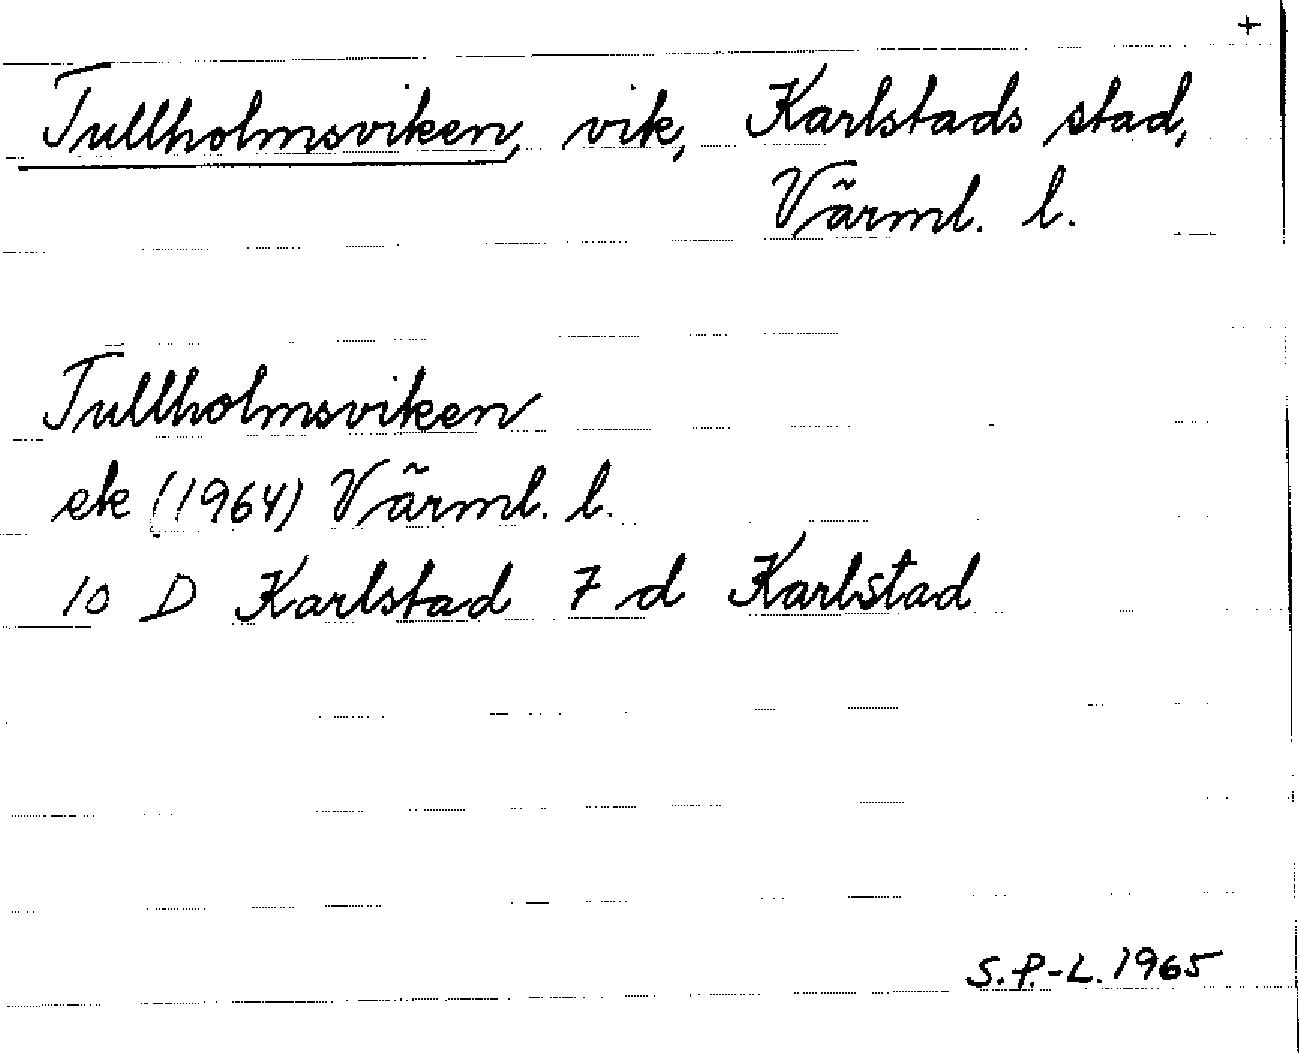 +
Tullholmsviken, vik, Karlstads stad,
Värml. l.
Tullholmsviken
ek (1964) Värml. l.
10 D Karlstad 7 d Karlstad
S.P.-L. 1965